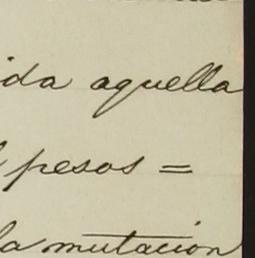 ida aquella
pesos =
la mutacion